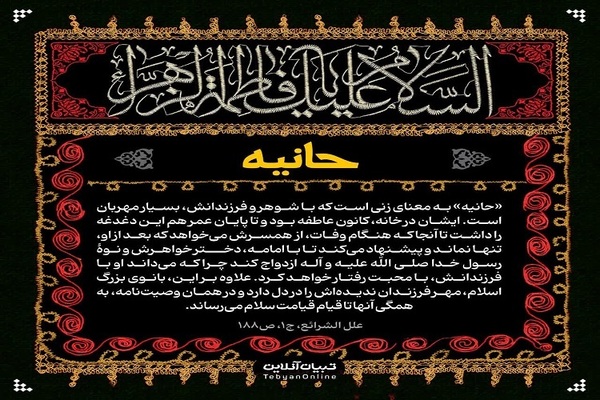 السلام علیک یا فاطمة الزهراء
حانیه
«حانیه» به معنای زنی است که با شوهر و فرزندانش، بسیار مهربان
است. ایشان در خانه، کانون عاطفه بود و تا پایان عمر هم این دغدغه
را داشت تا آنجا که هنگام وفات، از همسرش می‌خواهد که بعد از او،
تنها نماند و پیشنهاد می‌کند تا با امامه، دختر خواهرش و نوهٔ
رسول خدا صلی الله علیه و آله ازدواج کند چرا که می‌داند او با
فرزندانش، با محبت رفتار خواهد کرد. علاوه بر این، بانوی بزرگ
اسلام، مهر فرزندان ندیده‌اش را در دل دارد و در همان وصیت‌نامه، به
همگی آنها تا قیام قیامت سلام می‌رساند.
علل الشرائع، ج۱، ص۱۸۸
تبیان آنلاین
TebyanOnline